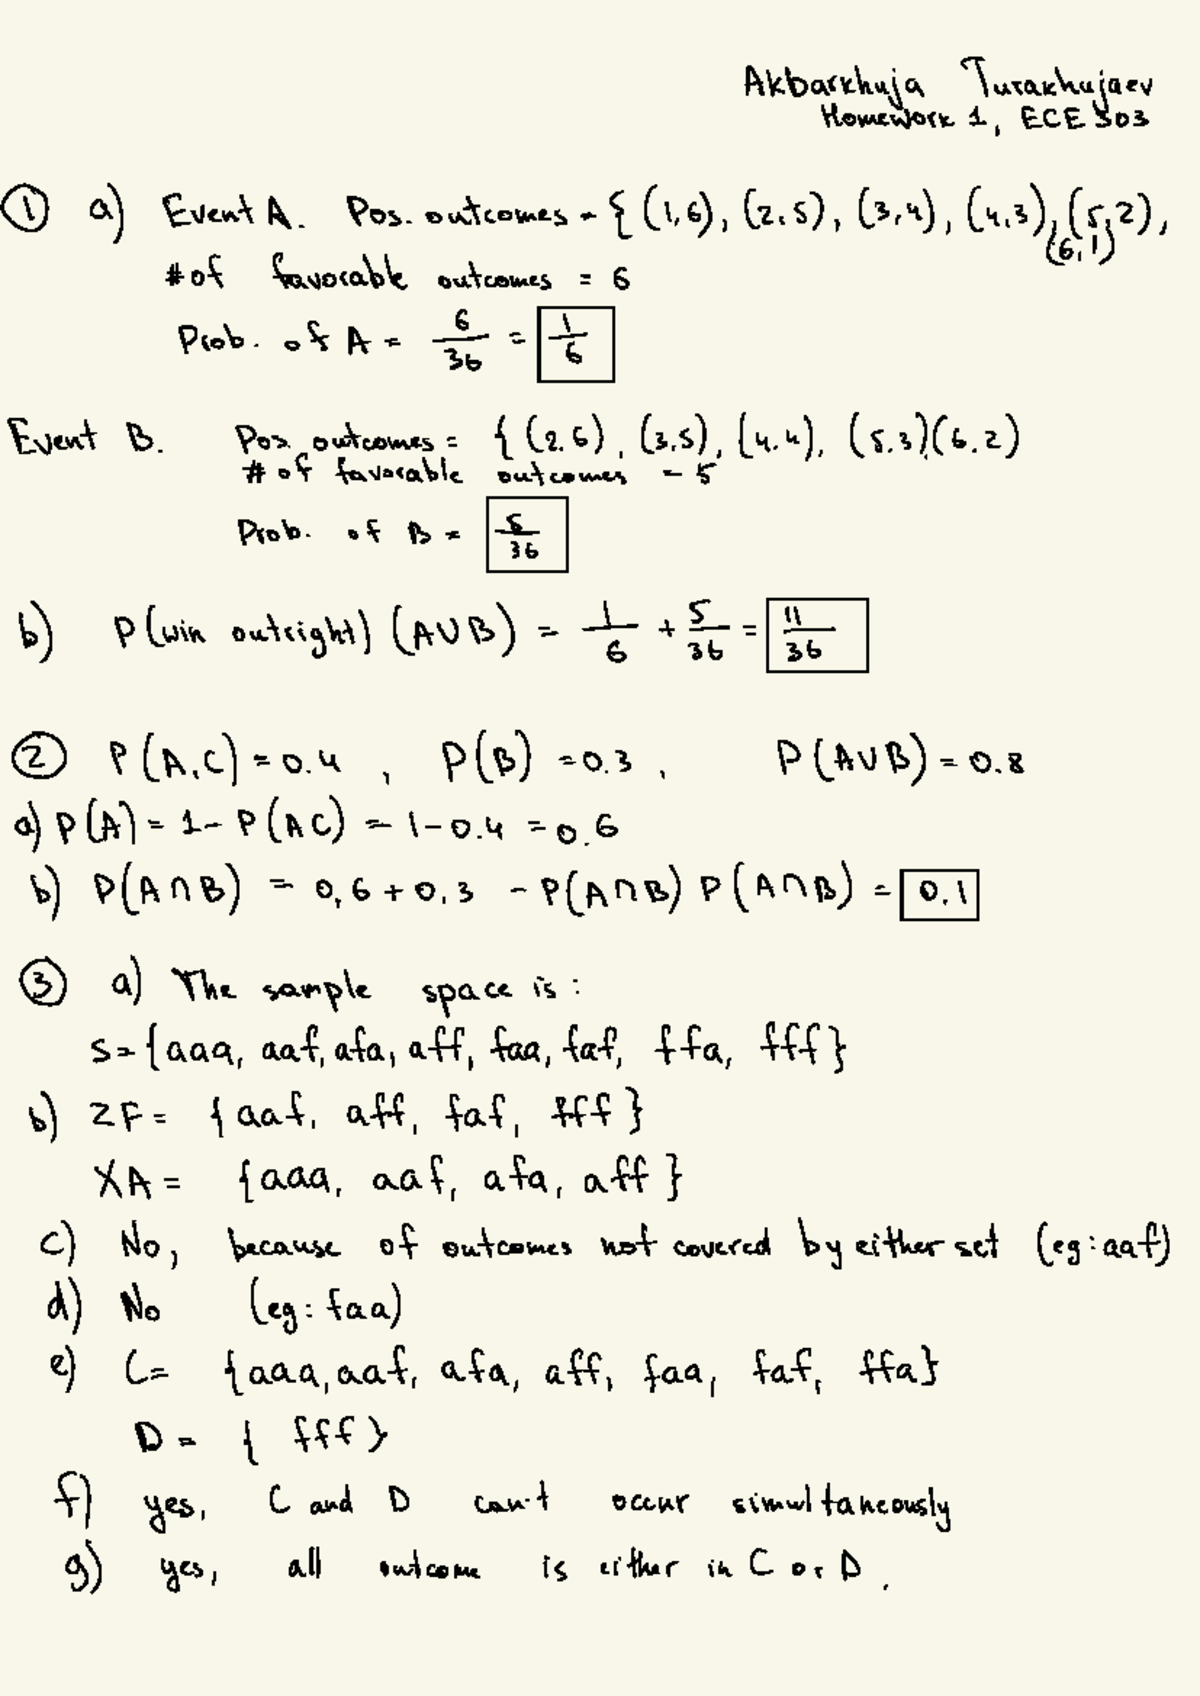 Akbarkhuja Turakhujaev
Homework 1, ECE 303
① a) Event A. Pos. outcomes = { (1,6), (2,5), (3,4), (4,3), (5,2),
(6,1)
# of favorable outcomes = 6
Prob. of A = 6/36 = 1/6
Event B. Pos. outcomes = { (2,6), (3,5), (4,4), (5,3)(6,2)
# of favorable outcomes = 5
Prob. of B = 5/36
b) P(win outright) (A∪B) = 1/6 + 5/36 = 11/36
② P(A,C) = 0.4 , P(B) = 0.3 , P(A∪B) = 0.8
a) P(A) = 1 - P(AC) = 1-0.4 = 0.6
b) P(A∩B) = 0,6 + 0,3 - P(A∩B) P(A∩B) = 0.1
③ a) The sample space is:
S={aaa, aaf, afa, aff, faa, faf, ffa, fff}
b) ZF = {aaf, aff, faf, fff}
XA = {aaa, aaf, afa, aff}
c) No, because of outcomes not covered by either set (eg: aaf)
d) No (eg: faa)
e) C= {aaa, aaf, afa, aff, faa, faf, ffa}
D = { fff}
f) yes, C and D can't occur simultaneously
g) yes, all outcome is either in C or D.